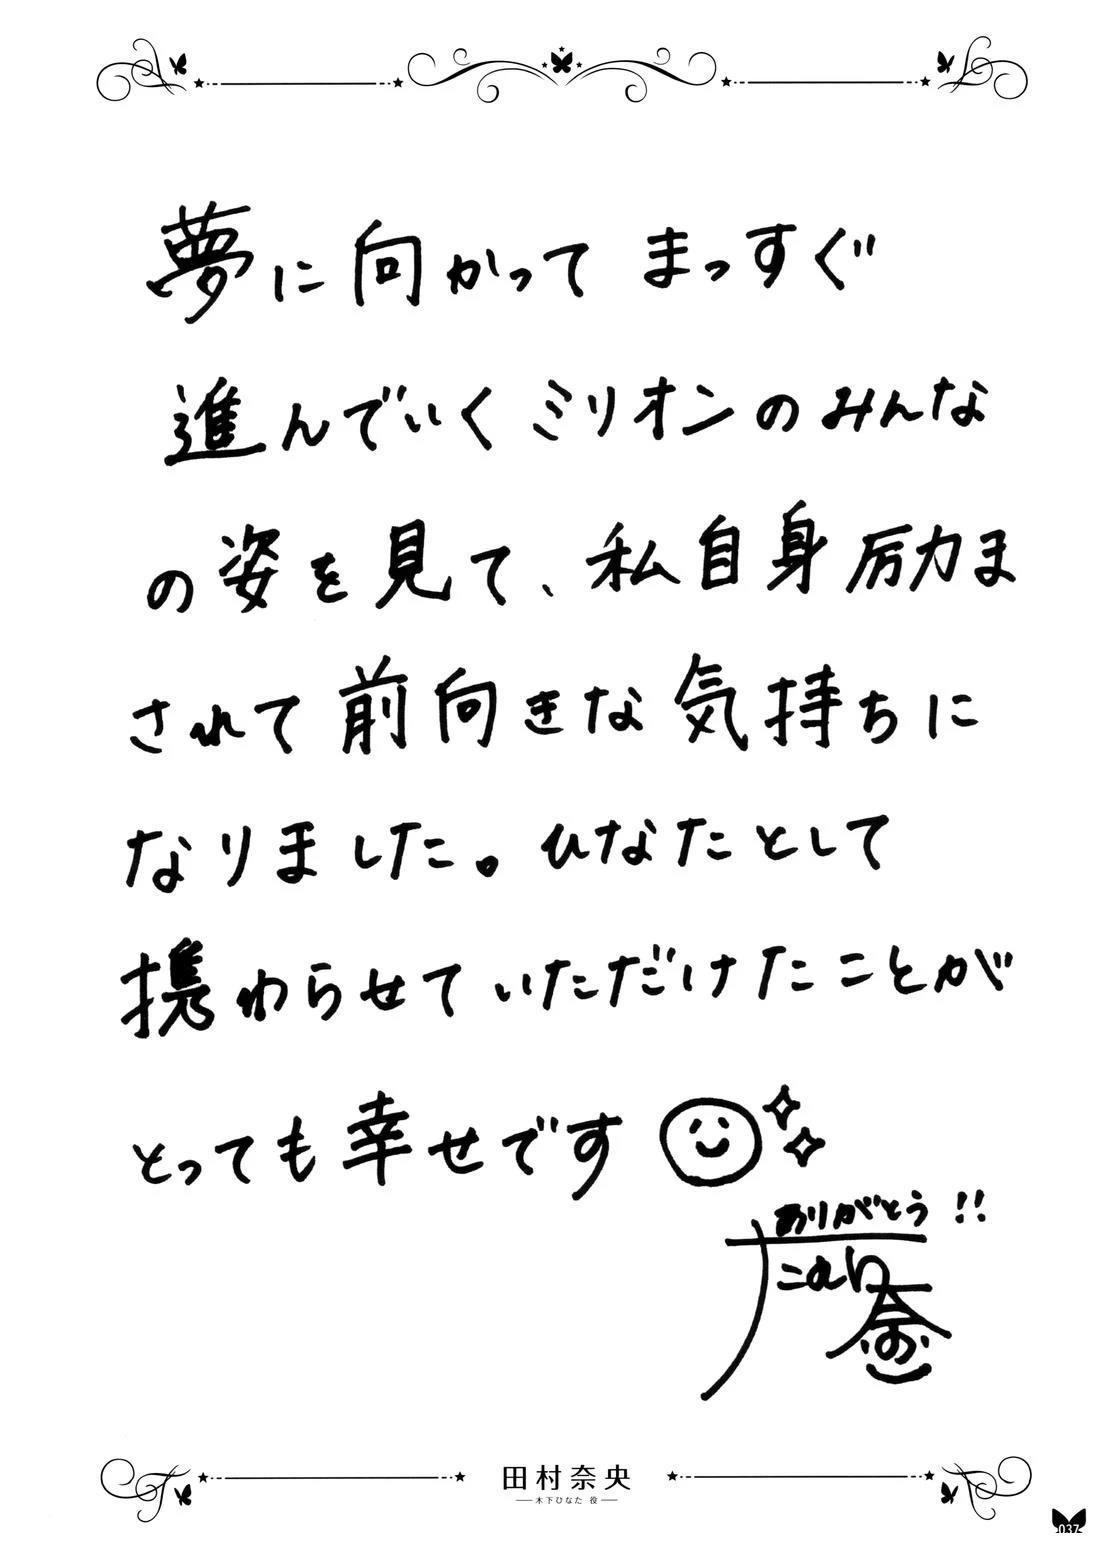 夢に向かって まっすぐ
進んでいく ミリオンのみんな
の姿を見て、私自身励ま
されて前向きな気持ちに
なりました。ひなたとして
携わらせていただけたことが
とっても幸せです
ありがとう!!
田村奈央
木下ひなた 役
037